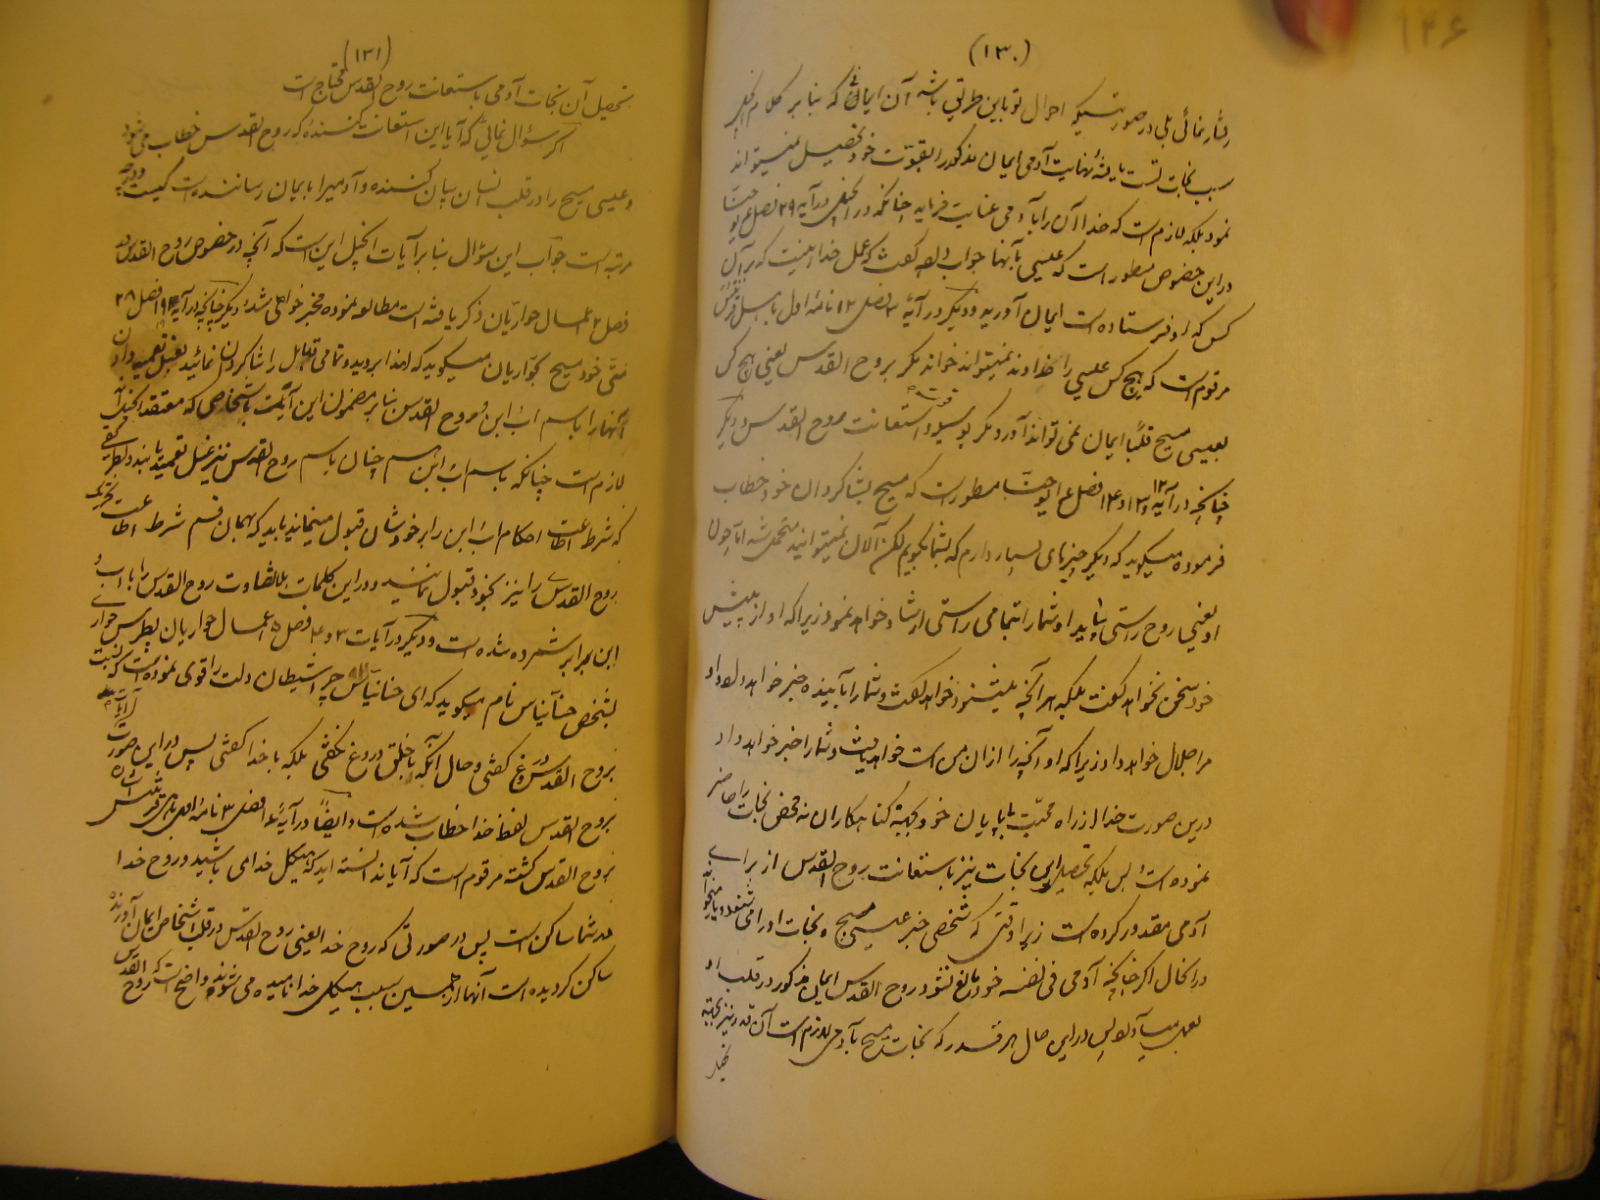 ۱۴۶
(۱۳۰)
رفتار نمائی بلی در صورتیکه احوال تو باین طریق باشد آن ایمانی که بنا بر کلام انجیل
سبب نجات تست یافتهٔ نهایت آدمی ایمان مذکور را بقوّت خود تحصیل نمیتواند
نمود بلکه لازم است که خدا آن را بآدمی عنایت فرماید چنانکه در انجیل در آیه ۲۹ فصل ۶ یوحنّا
در این خصوص مسطور است که عیسی بآنها جواب داده گفت که عمل خدا اینست که بر آن
کس که او فرستاده است ایمان آورید و دیگر در آیهٔ ۳ فصل ۱۲ نامهٔ اول باهل قرنتس
مرقوم است که هیچ کس عیسی را خداوند نمیتواند خواند مگر بروح القدس یعنی هیچ کس
بعیسی مسیح قلبًا ایمان نمی تواند آورد مگر بوسیله قوت و استعانت روح القدس و دیگر
چنانچه در آیه ۱۲ و ۱۳ و ۱۴ فصل ۱۶ یوحنّا مسطور است که مسیح بشاکردان خود خطاب
فرموده میگوید که دیگر چیزهای بسیار دارم که بشما بگویم لکن الآن نمیتوانید متحمل شد امّا چون
او یعنی روح راستی بیاید او شما را بتمامی راستی ارشاد خواهد نمود زیرا که او از پیش
خود سخن نخواهد گفت بلکه هر آنچه میشنود خواهد گفت و شما را بآینده خبر خواهد داد و او
مرا جلال خواهد داد زیرا که او آنچه را از آن من است خواهد یافت و شما را خبر خواهد داد
درین صورت خدا از راه محبّت بی پایان خود بجهته کناهکاران نه محض نجات را حاضر
نموده است و بس بلکه تحصیل این نجات نیز باستعانت روح القدس از برای
آدمی مقدور کرده است زیرا وقتی که شخصی خبر عیسی مسیح و نجات او را می شنود و یا میخواند
در انحال اکر چنانچه آدمی فی نفسه خود مانع نشود روح القدس ایمان مذکور در قلب او
بعمل می آورد پس در این حال هر قدر که نجات مسیح بآدمی لازم است آن قدر نیز بجهته
(۱۳۱)
تحصیل آن نجات آدمی باستعانت روح القدس محتاج است
اکر سؤال نمائی که آیا این استعانت کننده که روح القدس خطاب می شود
و عیسی مسیح را در قلب انسان بیان کننده و آدمیرا بایمان رساننده است کیست و در چه
مرتبه است جواب این سؤال بنا بر آیات انجیل این است که آنچه در خصوص روح القدس در
فصل ۲ اعمال حواریان ذکر یافته است مطالعه نموده مخبر خواهی شد و دیگر چنانچه در آیه ۱۹ فصل ۲۸
متّی خود مسیح بحواریان میگوید که لهذا بروید و تمامی قبایل را شاکردان نمائید بغسل تعمید دادن
آنها را باسم اب و ابن و روح القدس بنا بر مضمون این آیت باشخاصی که معتقد انجیل اند
لازم است چنانکه باسم اب و ابن هم چنان باسم روح القدس نیز غسل تعمید یابند و بطریقی
که شرط اطاعت احکام اب و ابن را بر خودشان قبول مینمایند باید که بهمان قسم شرط اطاعت
روح القدس را نیز بخود قبول نمایند و در این کلمات بلا تفاوت روح القدس با اب و
ابن برابر شمرده شده است و دیگر در آیات ۳ و ۴ فصل ۵ اعمال حواریان پطرس حواری
بشخص حنانیاس نام میگوید که ای حنانیاس چرا شیطان دلت را قوی نموده است که نسبت
بروح القدس دروغ گفتی و حال آنکه با خلق دروغ نگفتی بلکه با خدا گفتی پس در این صورت
بروح القدس لفظ خدا خطاب شده است و ایضًا در آیهٔ ۱۶ فصل ۳ نامهٔ اول باهل قرنتس
بروح القدس گشته مرقوم است که آیا ندانسته اید که هیکل خدای باشید و روح خدا
در شما ساکن است پس در صورتی که روح خدا یعنی روح القدس در قلب اشخاص ایمان آورنده
ساکن کردیده است آنها از همین سبب هیکل خدا نامیده می شوند و واضح است که روح القدس